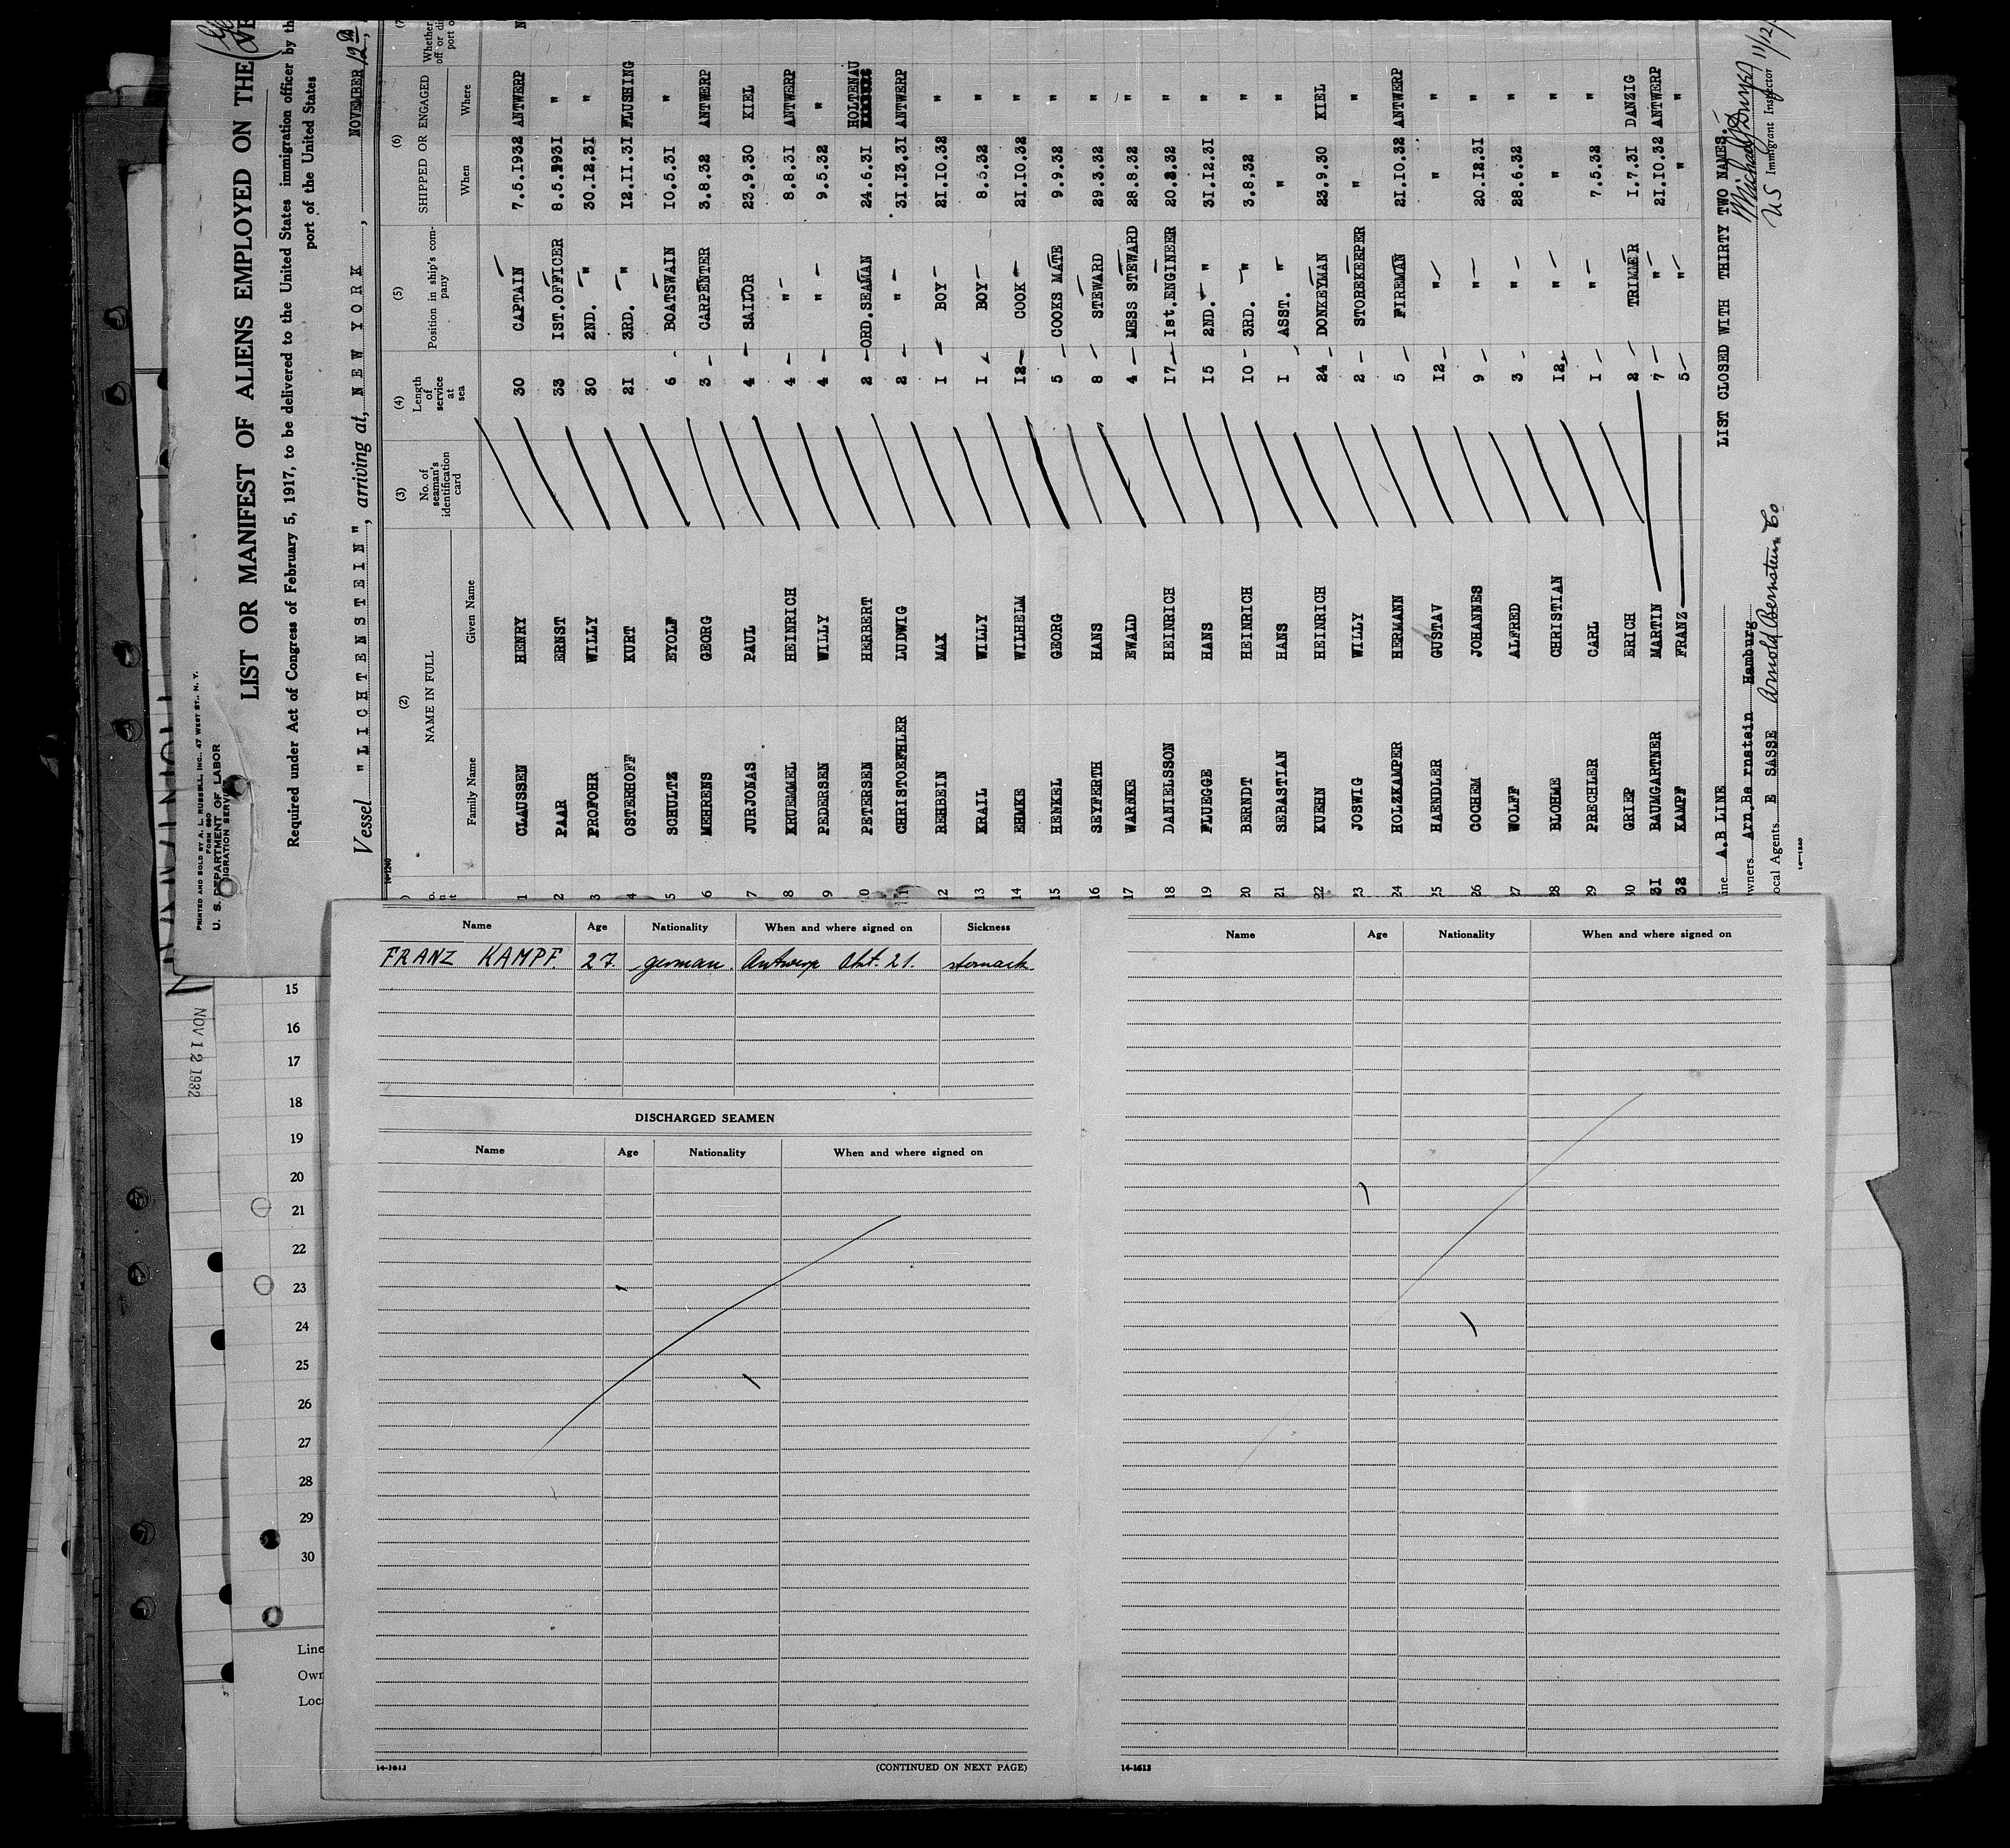 PRINTED AND SOLD BY A. L. RUSSELL, INC., 47 WEST ST., N. Y.
FORM 680
U. S. DEPARTMENT OF LABOR
IMMIGRATION SERVICE
LIST OR MANIFEST OF ALIENS EMPLOYED ON THE
Required under Act of Congress of February 5, 1917, to be delivered to the United States immigration officer by th
port of the United States
Vessel "LICHTENSTEIN", arriving at, NEW YORK, NOVEMBER 12th,
14-1240
(2) (3) (4) (5) (6) (7
NAME IN FULL No. of seaman's identification card Length of service at sea Position in ship's company SHIPPED OR ENGAGED Whether
Family Name Given Name When Where
1 CLAUSSEN HENRY 30 CAPTAIN 7.5.1932 ANTWERP N
2 PAAR ERNST 33 IST.OFFICER 8.5.1931 "
3 PROFOHR WILLY 30 2ND. " 30.12.31 "
4 OSTERHOFF KURT 21 3RD. " 12.11.31 FLUSHING
5 SCHULTZ EYOLF 6 BOATSWAIN 10.5.31 "
6 MEHRENS GEORG 3 CARPENTER 3.8.32 ANTWERP
7 JURJONAS PAUL 4 SAILOR 23.9.30 KIEL
8 KRUEMMEL HEINRICH 4 " 8.8.31 ANTWERP
9 PEDERSEN WILLY 4 " 9.5.32 "
10 PETERSSEN HERBERT 2 ORD.SEAMAN 24.6.31 HOLTENAU
11 CHRISTOEFHLER LUDWIG 2 " 31.13.31 ANTWERP
12 REHBEIN MAX 1 BOY 21.10.32 "
13 KRAIL WILLY 1 BOY 8.5.32 "
14 EHMKE WILHELM 12 COOK 21.10.32 "
15 HENKEL GEORG 5 COOKS MATE 9.9.32 "
16 SEYFERTH HANS 8 STEWARD 29.3.32 "
17 WARNKE EWALD 4 MESS STEWARD 28.8.32 "
18 DANIELSSON HEINRICH 17 1st.ENGINEER 20.2.32 "
19 FLUEGGE HANS 15 2ND. " 31.12.31 "
20 BERNDT HEINRICH 10 3RD. " 3.8.32 "
21 SEBASTIAN HANS 1 ASST. " " "
22 KUEHN HEINRICH 24 DONKEYMAN 23.9.30 KIEL
23 JOSWIG WILLY 2 STOREKEEPER " "
24 HOLZKAMPER HERMANN 5 FIREMAN 21.10.32 ANTWERP
25 HAENDLER GUSTAV 12 " " "
26 COCHEM JOHANNES 9 " 20.12.31 "
27 WOLFF ALFRED 3 " 28.6.32 "
28 BLOHME CHRISTIAN 12 " " "
29 PRECHLER CARL 1 " 7.5.32 "
30 GRIEP ERICH 2 TRIMMER 1.7.31 DANZIG
31 BAUMGARTNER MARTIN 7 " 21.10.32 ANTWERP
32 KAMPF FRANZ 5 " " "
LIST CLOSED WITH THIRTY TWO NAMES.
ine A.B LINE
wners Arn.Bernstein Hamburg
ocal Agents E SASSE Arnold Bernstein Co
US Immigrant Inspector 11/12/
14-1240
Name Age Nationality When and where signed on Sickness
FRANZ KAMPF. 27 german. Antwerp Okt. 21. stomach
DISCHARGED SEAMEN
Name Age Nationality When and where signed on
14-1613 (CONTINUED ON NEXT PAGE)
Name Age Nationality When and where signed on
14-1613
NOV 12 1932
15
16
17
18
19
20
21
22
23
24
25
26
27
28
29
30
Line
Own
Loca